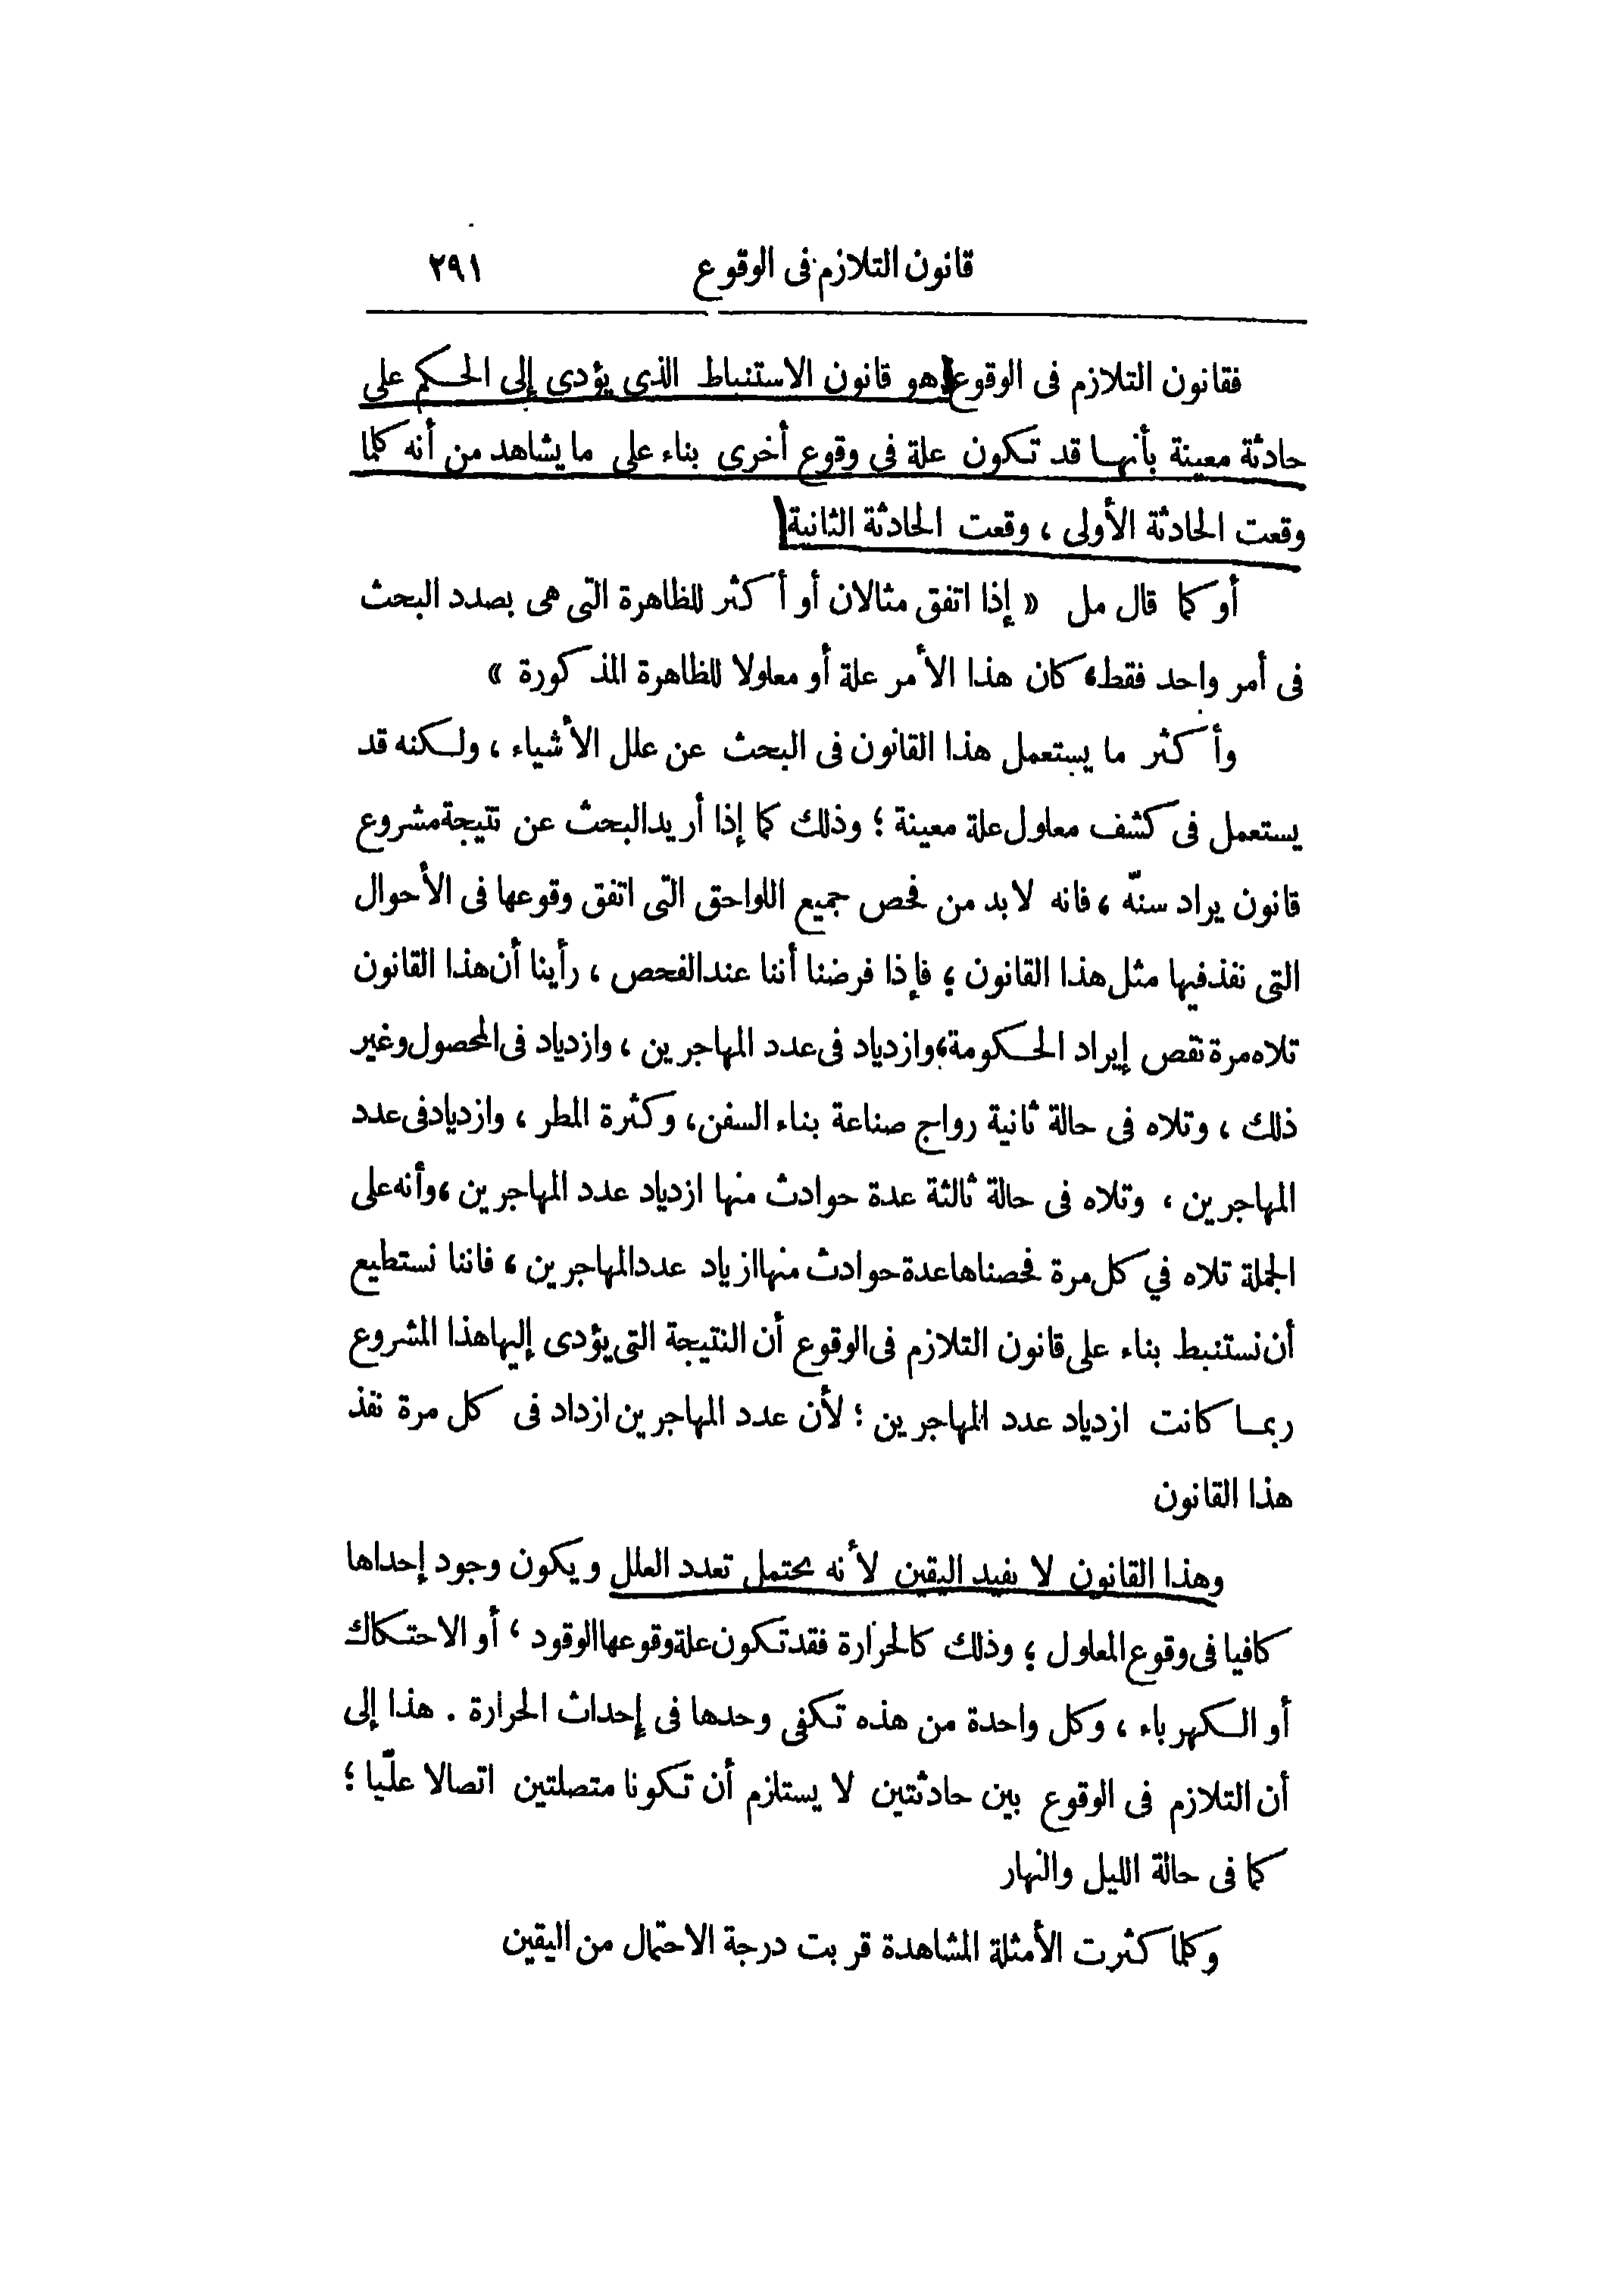 قانون التلازم فى الوقوع ٢٩١
فقانون التلازم فى الوقوع هو قانون الاستنباط الذى يؤدى إلى الحكم على
حادثة معينة بأنها قد تكون علة فى وقوع أخرى بناء على ما يشاهد من أنه كلما
وقعت الحادثة الأولى ، وقعت الحادثة الثانية
أو كما قال مل « إذا اتفق مثالان أو أكثر للظاهرة التى هى بصدد البحث
فى أمر واحد فقط، كان هذا الأمر علة أو معلولا للظاهرة المذكورة »
وأكثر ما يستعمل هذا القانون فى البحث عن علل الأشياء ، ولكنه قد
يستعمل فى كشف معلول علة معينة ؛ وذلك كما إذا أريد البحث عن نتيجة مشروع
قانون يراد سنّه ، فانه لابد من فحص جميع اللواحق التى اتفق وقوعها فى الأحوال
التى نفذ فيها مثل هذا القانون ؛ فإذا فرضنا أننا عند الفحص ، رأينا أن هذا القانون
تلاه مرة نقص إيراد الحكومة، وازدياد فى عدد المهاجرين ، وازدياد فى المحصول وغير
ذلك ، وتلاه فى حالة ثانية رواج صناعة بناء السفن، وكثرة المطر ، وازدياد فى عدد
المهاجرين ، وتلاه فى حالة ثالثة عدة حوادث منها ازدياد عدد المهاجرين ، وأنه على
الجملة تلاه في كل مرة فحصناها عدة حوادث منها ازياد عدد المهاجرين ، فاننا نستطيع
أن نستنبط بناء على قانون التلازم فى الوقوع أن النتيجة التى يؤدى إليها هذا المشروع
ربما كانت ازدياد عدد المهاجرين ؛ لأن عدد المهاجرين ازداد فى كل مرة نفذ
هذا القانون
وهذا القانون لا يفيد اليقين لأنه يحتمل تعدد العلل ويكون وجود إحداها
كافيا فى وقوع المعلول ؛ وذلك كالحرارة فقد تكون علة وقوعها الوقود ، أو الاحتكاك
أو الكهرباء ، وكل واحدة من هذه تكفى وحدها فى إحداث الحرارة . هذا إلى
أن التلازم فى الوقوع بين حادثتين لا يستلزم أن تكونا متصلتين اتصالا علّيا ؛
كما فى حالة الليل والنهار
وكلما كثرت الأمثلة المشاهدة قربت درجة الاحتمال من اليقين